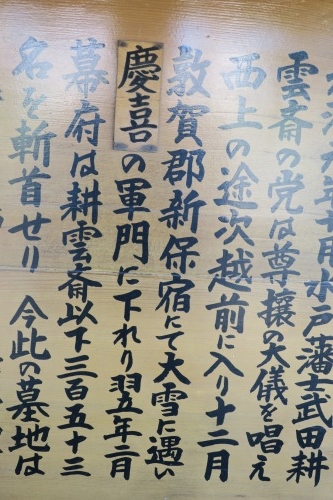 年十月水戸藩士武田耕
雲斎の党は尊攘の大儀を唱え
西上の途次越前に入り十二月
敦賀郡新保宿にて大雪に遇い
慶喜の軍門に下れり翌五年二月
幕府は耕雲斎以下三百五十三
名を斬首せり 今此の墓地は